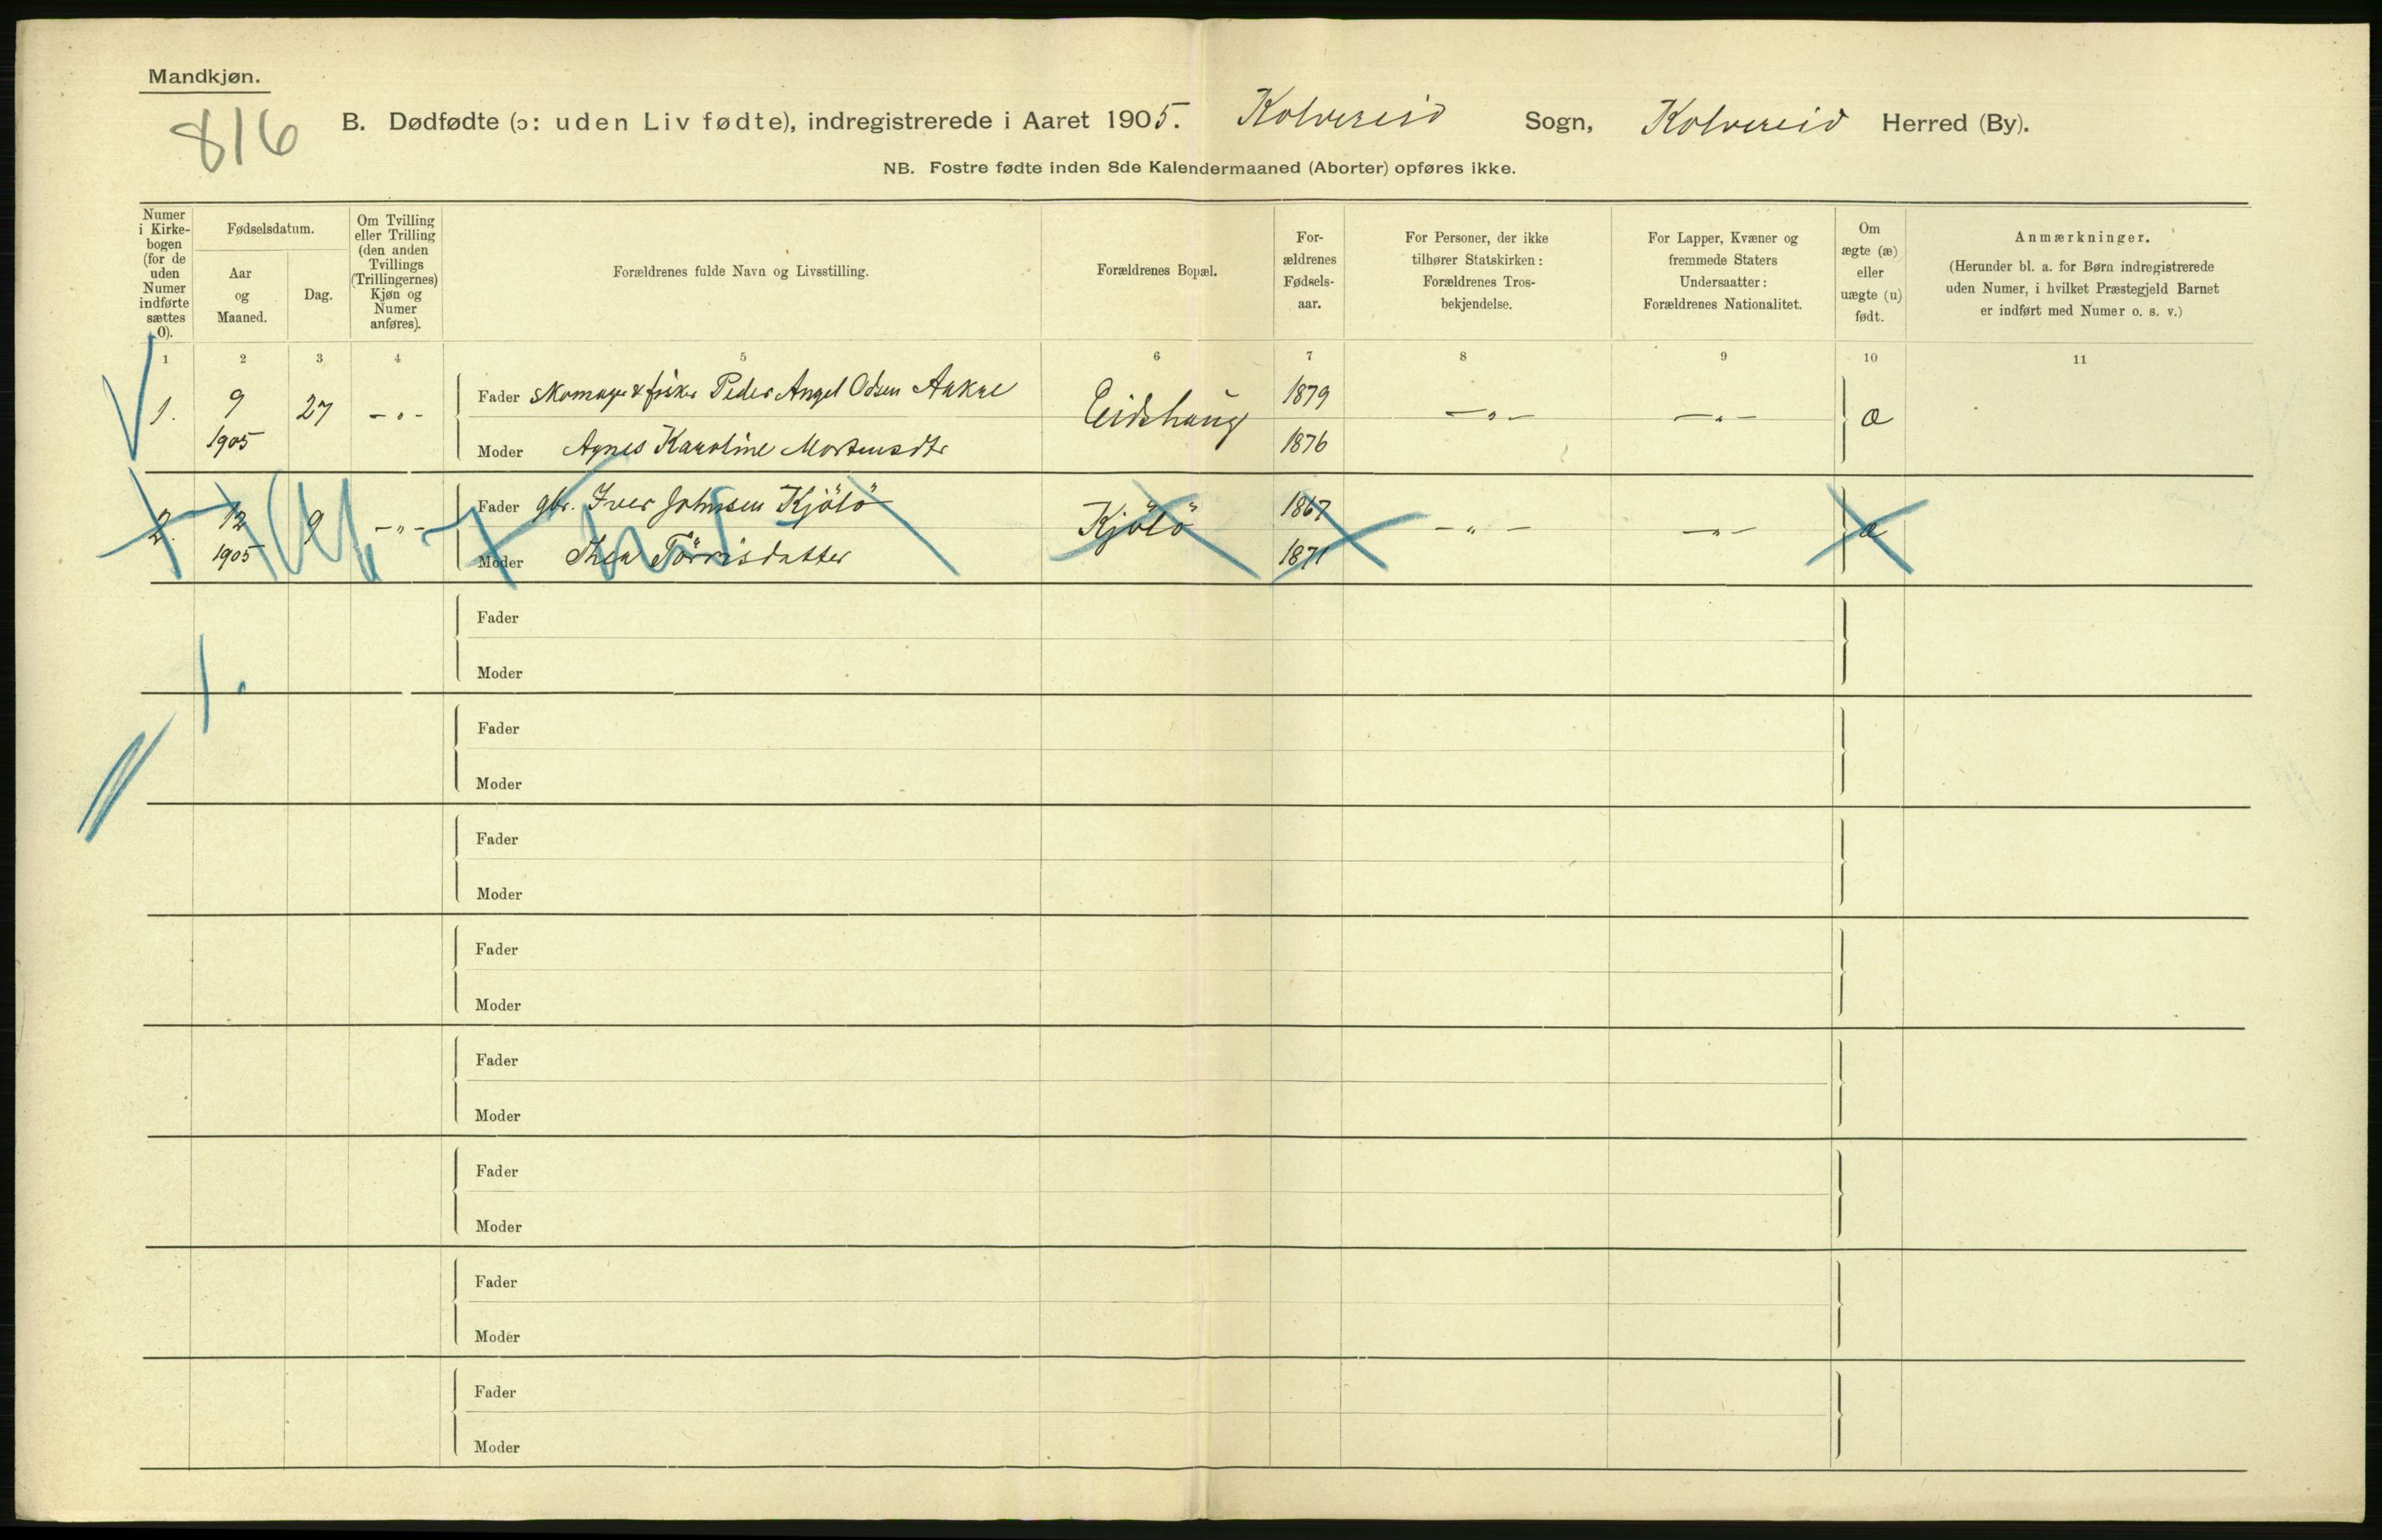 Mandkjøn.
816
B. Dødfødte (ɔ: uden Liv fødte), indregistrerede i Aaret 1905. Kolvereid Sogn, Kolvereid Herred (By).
NB. Fostre fødte inden 8de Kalendermaaned (Aborter) opføres ikke.
Numer i Kirkebogen (for de uden Numer indførte sættes 0).
Fødselsdatum.
Aar og Maaned.
Dag.
Om Tvilling eller Trilling (den anden Tvillings (Trillingernes) Kjøn og Numer anføres).
Forældrenes fulde Navn og Livsstilling.
Forældrenes Bopæl.
For-ældrenes Fødsels-aar.
For Personer, der ikke tilhører Statskirken: Forældrenes Tros-bekjendelse.
For Lapper, Kvæner og fremmede Staters Undersaatter: Forældrenes Nationalitet.
Om ægte (æ) eller uægte (u) født.
Anmærkninger.
(Herunder bl. a. for Børn indregistrerede uden Numer, i hvilket Præstegjeld Barnet er indført med Numer o. s. v.)
1 2 3 4 5 6 7 8 9 10 11
1. 9 1905 27 -"- Fader Skomager & fisker Peder Angel Odsen Aakre Eidshaug 1879 -"- -"- æ
Moder Agnes Karoline Mortensdtr 1876
2. 12 1905 9 -"- Fader gbr. Iver Johnsen Kjölö Kjölö 1867 -"- -"- æ
Moder Thea Törrisdatter 1871
Fader
Moder
Fader
Moder
Fader
Moder
Fader
Moder
Fader
Moder
Fader
Moder
Fader
Moder
Fader
Moder